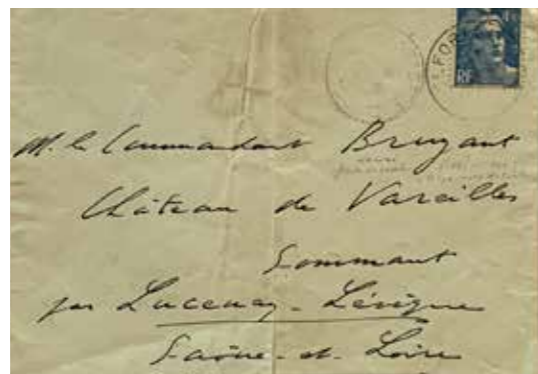 FOR
RF
M. le Commandant Bruzant
Château de Vareilles
Sommant
par Lucenay-Lévêque
Saône-et-Loire